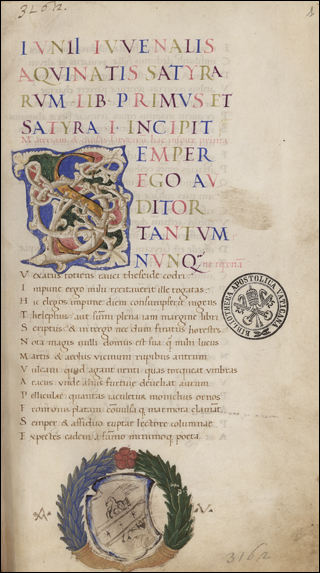 3162
IVNII IVVENALIS
AQVINATIS SATYRA
RVM LIB· PRIMVS ET
SATYRA · I · INCIPIT
SEMPER
EGO AV
DITOR
TANTVM
NVNQ
Vexatus totiens rauci theseide codri
Impune ergo mihi recitauerit ille togatas
Hic elegos impune diem consumpserit ingens
Thelephus aut summi plena iam margine libri
Scriptus & in tergo nec dum finitus horestes
Nota magis nulli domus est sua q mihi lucus
Martis & aeoliis vicinum rupibus antrum
Vulcani quid agant uenti quas torqueat umbras
Aeacus unde alius furtiuae deuehat aurum
Pelliculae quantas iaculetur monichus ornos
Frontonis platani conuulsa q marmora clamant
Semper & assiduo ruptae lectore columnae
Expectes eadem a summo minimoq poeta
BIBLIOTHECA APOSTOLICA VATICANA
A V
3162